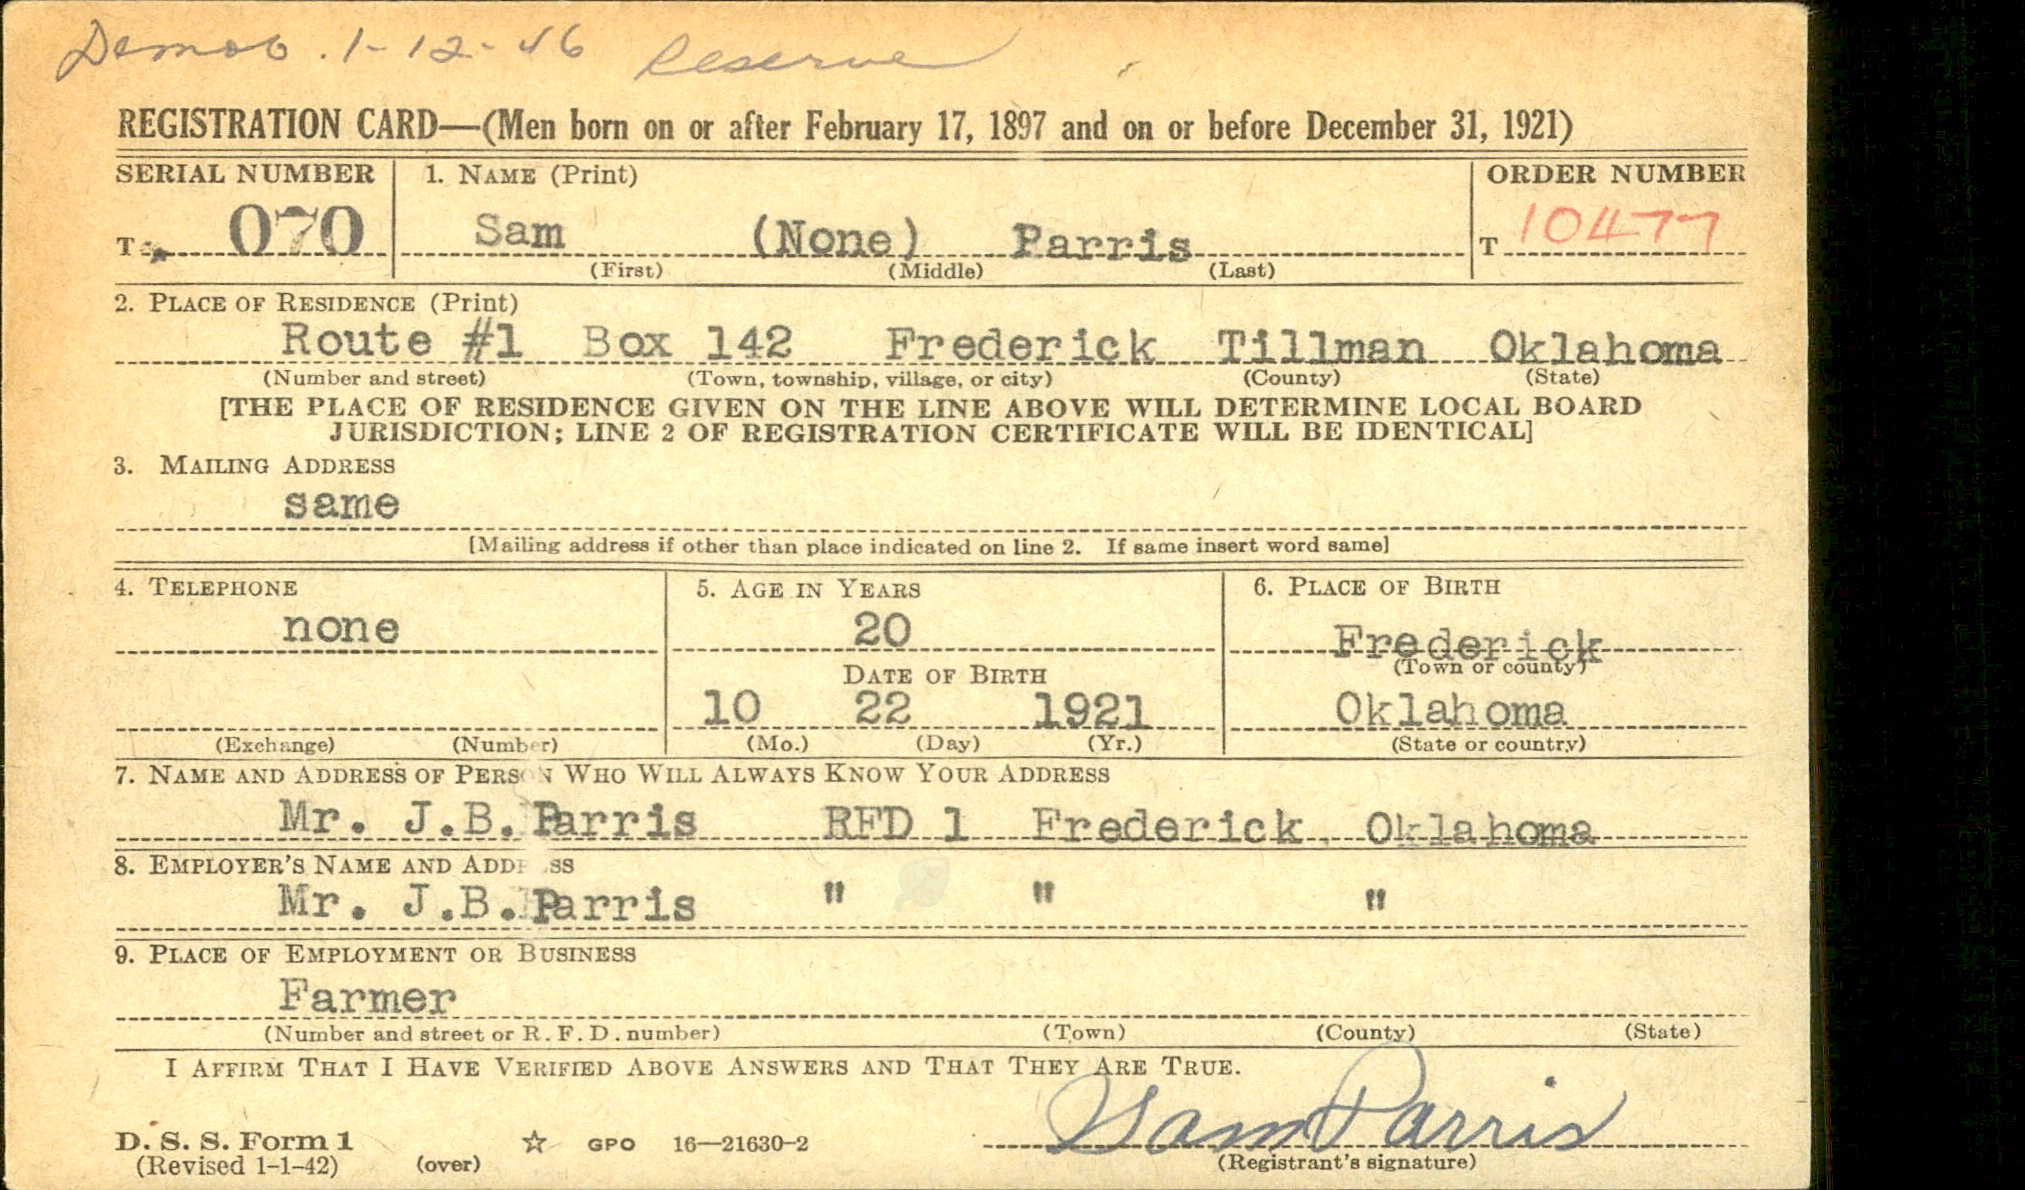 Demob. 1-12-46 Reserve
REGISTRATION CARD—(Men born on or after February 17, 1897 and on or before December 31, 1921)
SERIAL NUMBER 1. NAME (Print) ORDER NUMBER
T 070 Sam (None) Parris T 10477
(First) (Middle) (Last)
2. PLACE OF RESIDENCE (Print)
Route #1 Box 142 Frederick Tillman Oklahoma
(Number and street) (Town, township, village, or city) (County) (State)
[THE PLACE OF RESIDENCE GIVEN ON THE LINE ABOVE WILL DETERMINE LOCAL BOARD
JURISDICTION; LINE 2 OF REGISTRATION CERTIFICATE WILL BE IDENTICAL]
3. MAILING ADDRESS
same
[Mailing address if other than place indicated on line 2. If same insert word same]
4. TELEPHONE 5. AGE IN YEARS 6. PLACE OF BIRTH
none 20 Frederick
(Town or county)
DATE OF BIRTH
10 22 1921 Oklahoma
(Exchange) (Number) (Mo.) (Day) (Yr.) (State or country)
7. NAME AND ADDRESS OF PERSON WHO WILL ALWAYS KNOW YOUR ADDRESS
Mr. J.B. Parris RFD 1 Frederick Oklahoma
8. EMPLOYER'S NAME AND ADDRESS
Mr. J.B. Parris " " "
9. PLACE OF EMPLOYMENT OR BUSINESS
Farmer
(Number and street or R. F. D. number) (Town) (County) (State)
I AFFIRM THAT I HAVE VERIFIED ABOVE ANSWERS AND THAT THEY ARE TRUE.
Sam Parris
D. S. S. Form 1 ☆ GPO 16—21630-2
(Revised 1-1-42) (over) (Registrant's signature)